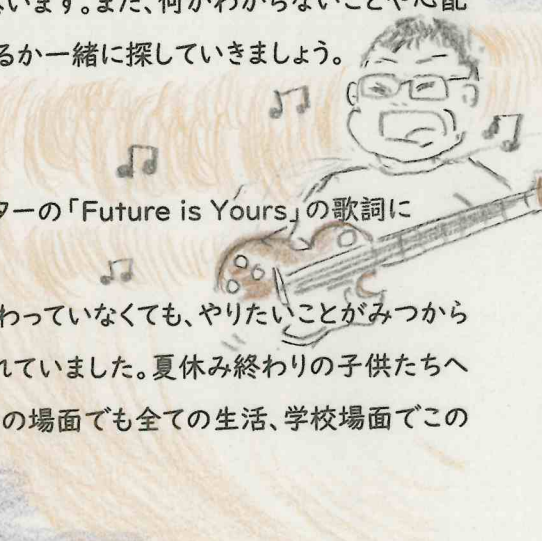 います。また、何かわからないことや心配
るか一緒に探していきましょう。
ターの「Future is Yours」の歌詞に
わっていなくても、やりたいことがみつから
れていました。夏休み終わりの子供たちへ
の場面でも全ての生活、学校場面でこの